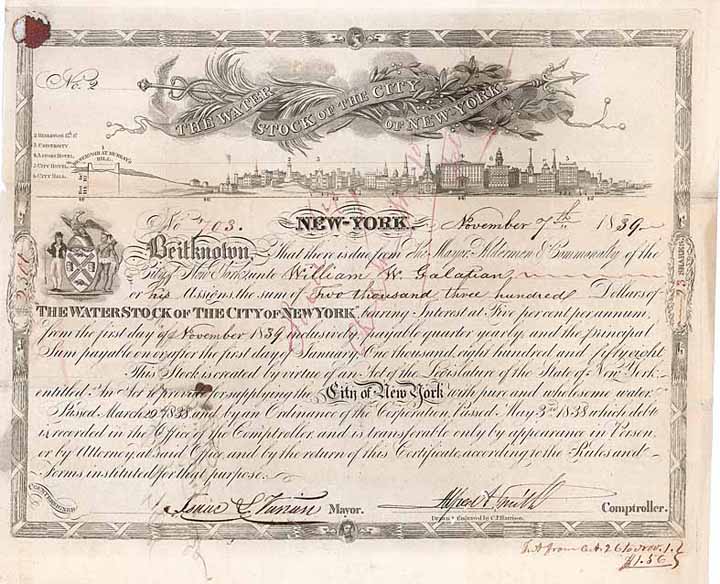 No. 2
THE WATER STOCK OF THE CITY OF NEW-YORK.
3 UNIVERSITY
4 ASTOR HOTEL
5 CITY HOTEL
6 CITY HALL
No. 703. NEW-YORK. November 7th 1839
Be it known, That there is due from The Mayor Aldermen & Commonalty of the
City of New York unto William W. Galatian
or his Assigns, the sum of Two thousand three hundred Dollars of
THE WATER STOCK OF THE CITY OF NEW YORK bearing Interest at Five per cent per annum,
from the first day of November 1839 inclusively, payable quarter yearly, and the principal
Sum payable on or after the first day of January One thousand eight hundred and fifty eight
This Stock is created by virtue of an Act of the Legislature of the State of New York
entitled An Act to provide for supplying the City of New York with pure and wholesome water
Passed March 1838 and by an Ordinance of the Corporation, Passed May 3rd 1838 which debt
is recorded in the Office of the Comptroller, and is transferable only by appearance in Person,
or by Attorney, at said Office, and by the return of this Certificate, according to the Rules and
Forms instituted for that purpose.
23 SHARES
2300
COUNTERSIGNED
Isaac L. Varian Mayor. Alfred A. Smith Comptroller.
Drawn & Engraved by C.P. Harrison.